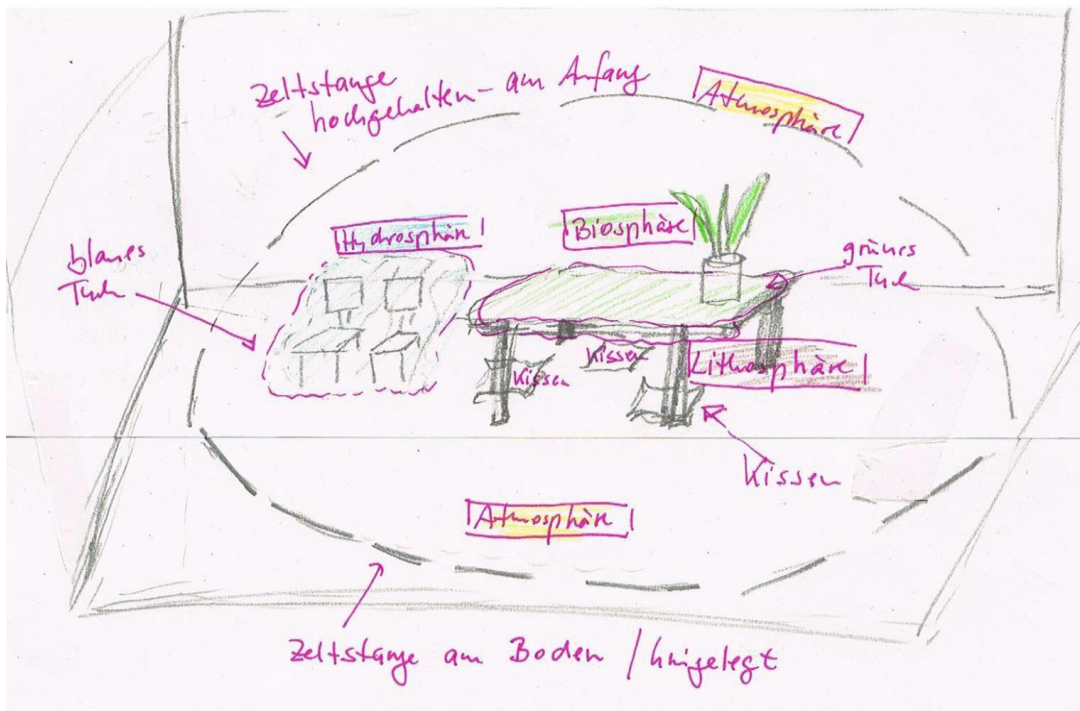 Zeltstange
hochgehalten - am Anfang
Atmosphäre
Hydrosphäre
Biosphäre
blaues
Tuch
grünes
Tuch
Kissen
Kissen
Lithosphäre
Kissen
Atmosphäre
Zeltstange am Boden / hingelegt